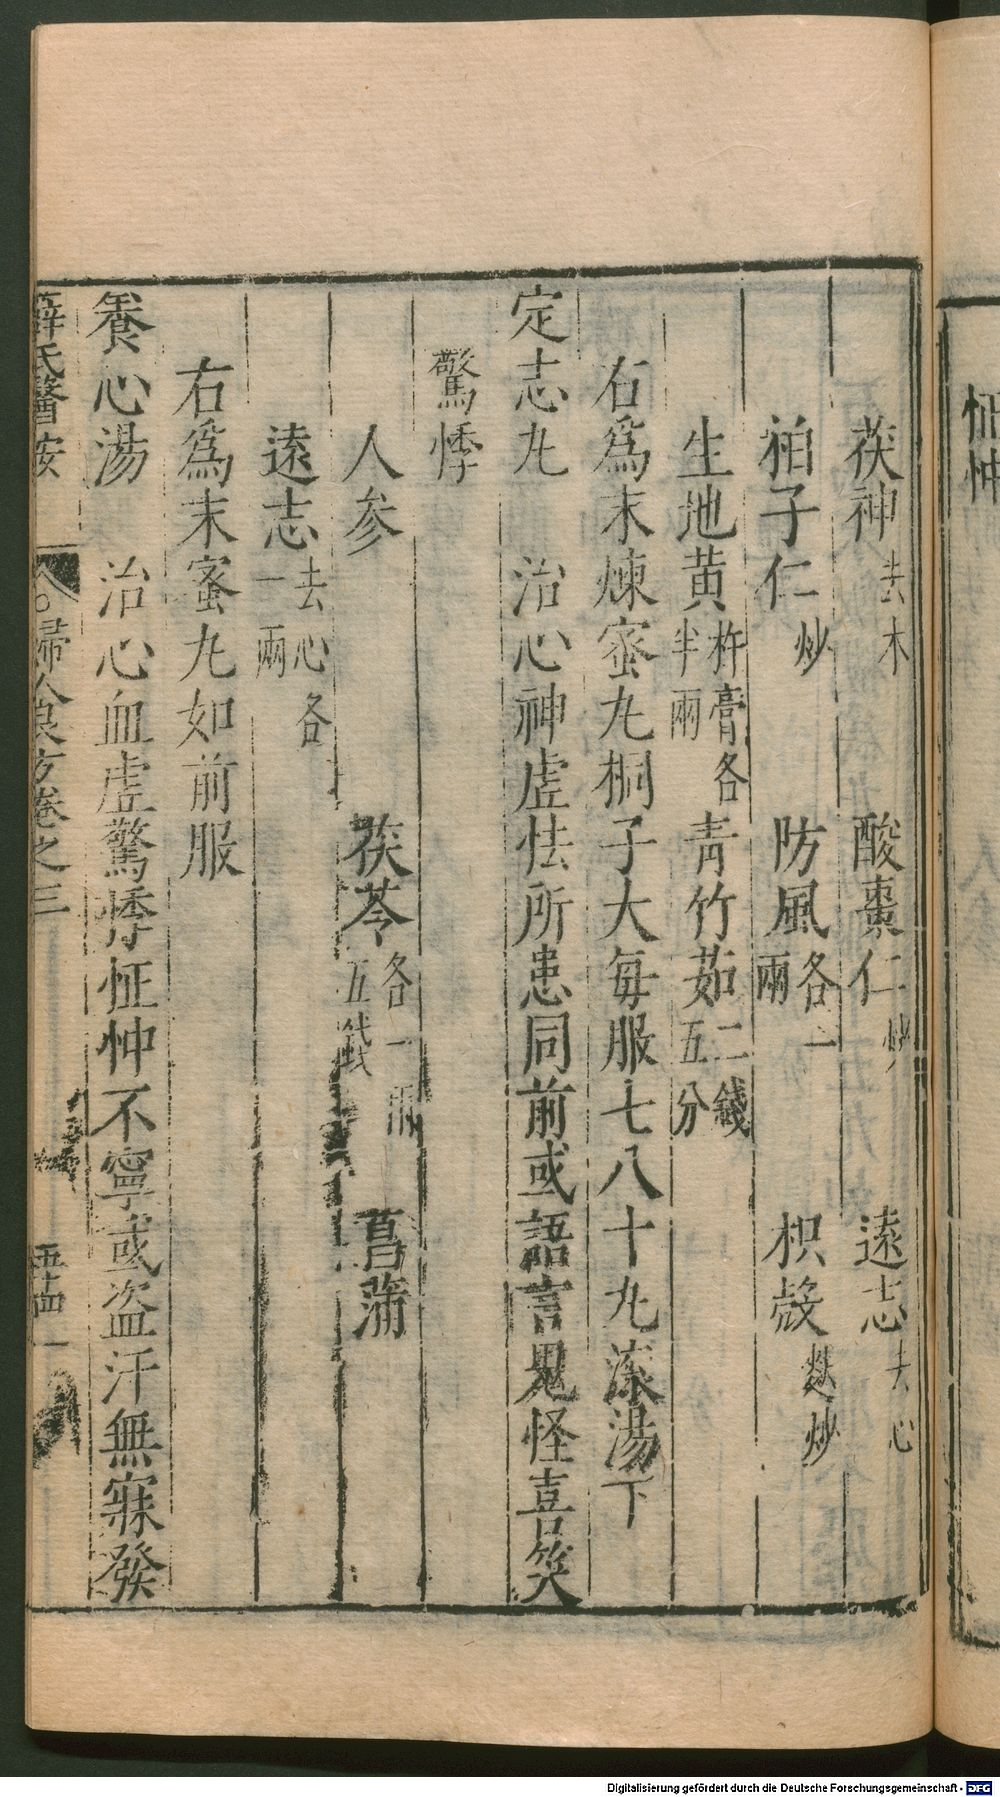 茯神去木　酸棗仁炒　遠志去心
栢子仁炒　防風各一兩　枳殼麩炒
生地黄杵膏各半兩　青竹茹二錢五分
右爲末煉蜜丸桐子大每服七八十丸滚湯下
定志丸　治心神虚怯所患同前或語言鬼怪喜笑
驚悸
人参　茯苓各一兩五錢　菖蒲
遠志去心各一兩
右爲末蜜丸如前服
養心湯　治心血虚驚悸怔忡不寧或盗汗無寐發
薛氏醫按　婦人良方卷之三　五十四
怔忡
Digitalisierung gefördert durch die Deutsche Forschungsgemeinschaft - DFG